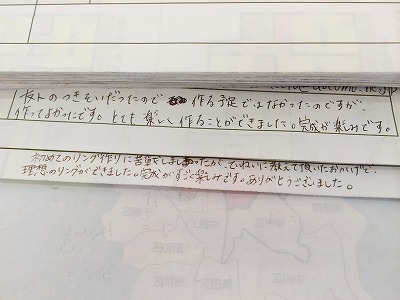 友人のつきそいだったので 作る予定ではなかったのですが、
作ってよかったです。とても楽しく作ることができました。完成が楽しみです。
初めてのリング作りに苦戦しましたが、ていねいに教えて頂いたおかげで、
理想のリングができました。完成がすごく楽しみです。ありがとうございました。